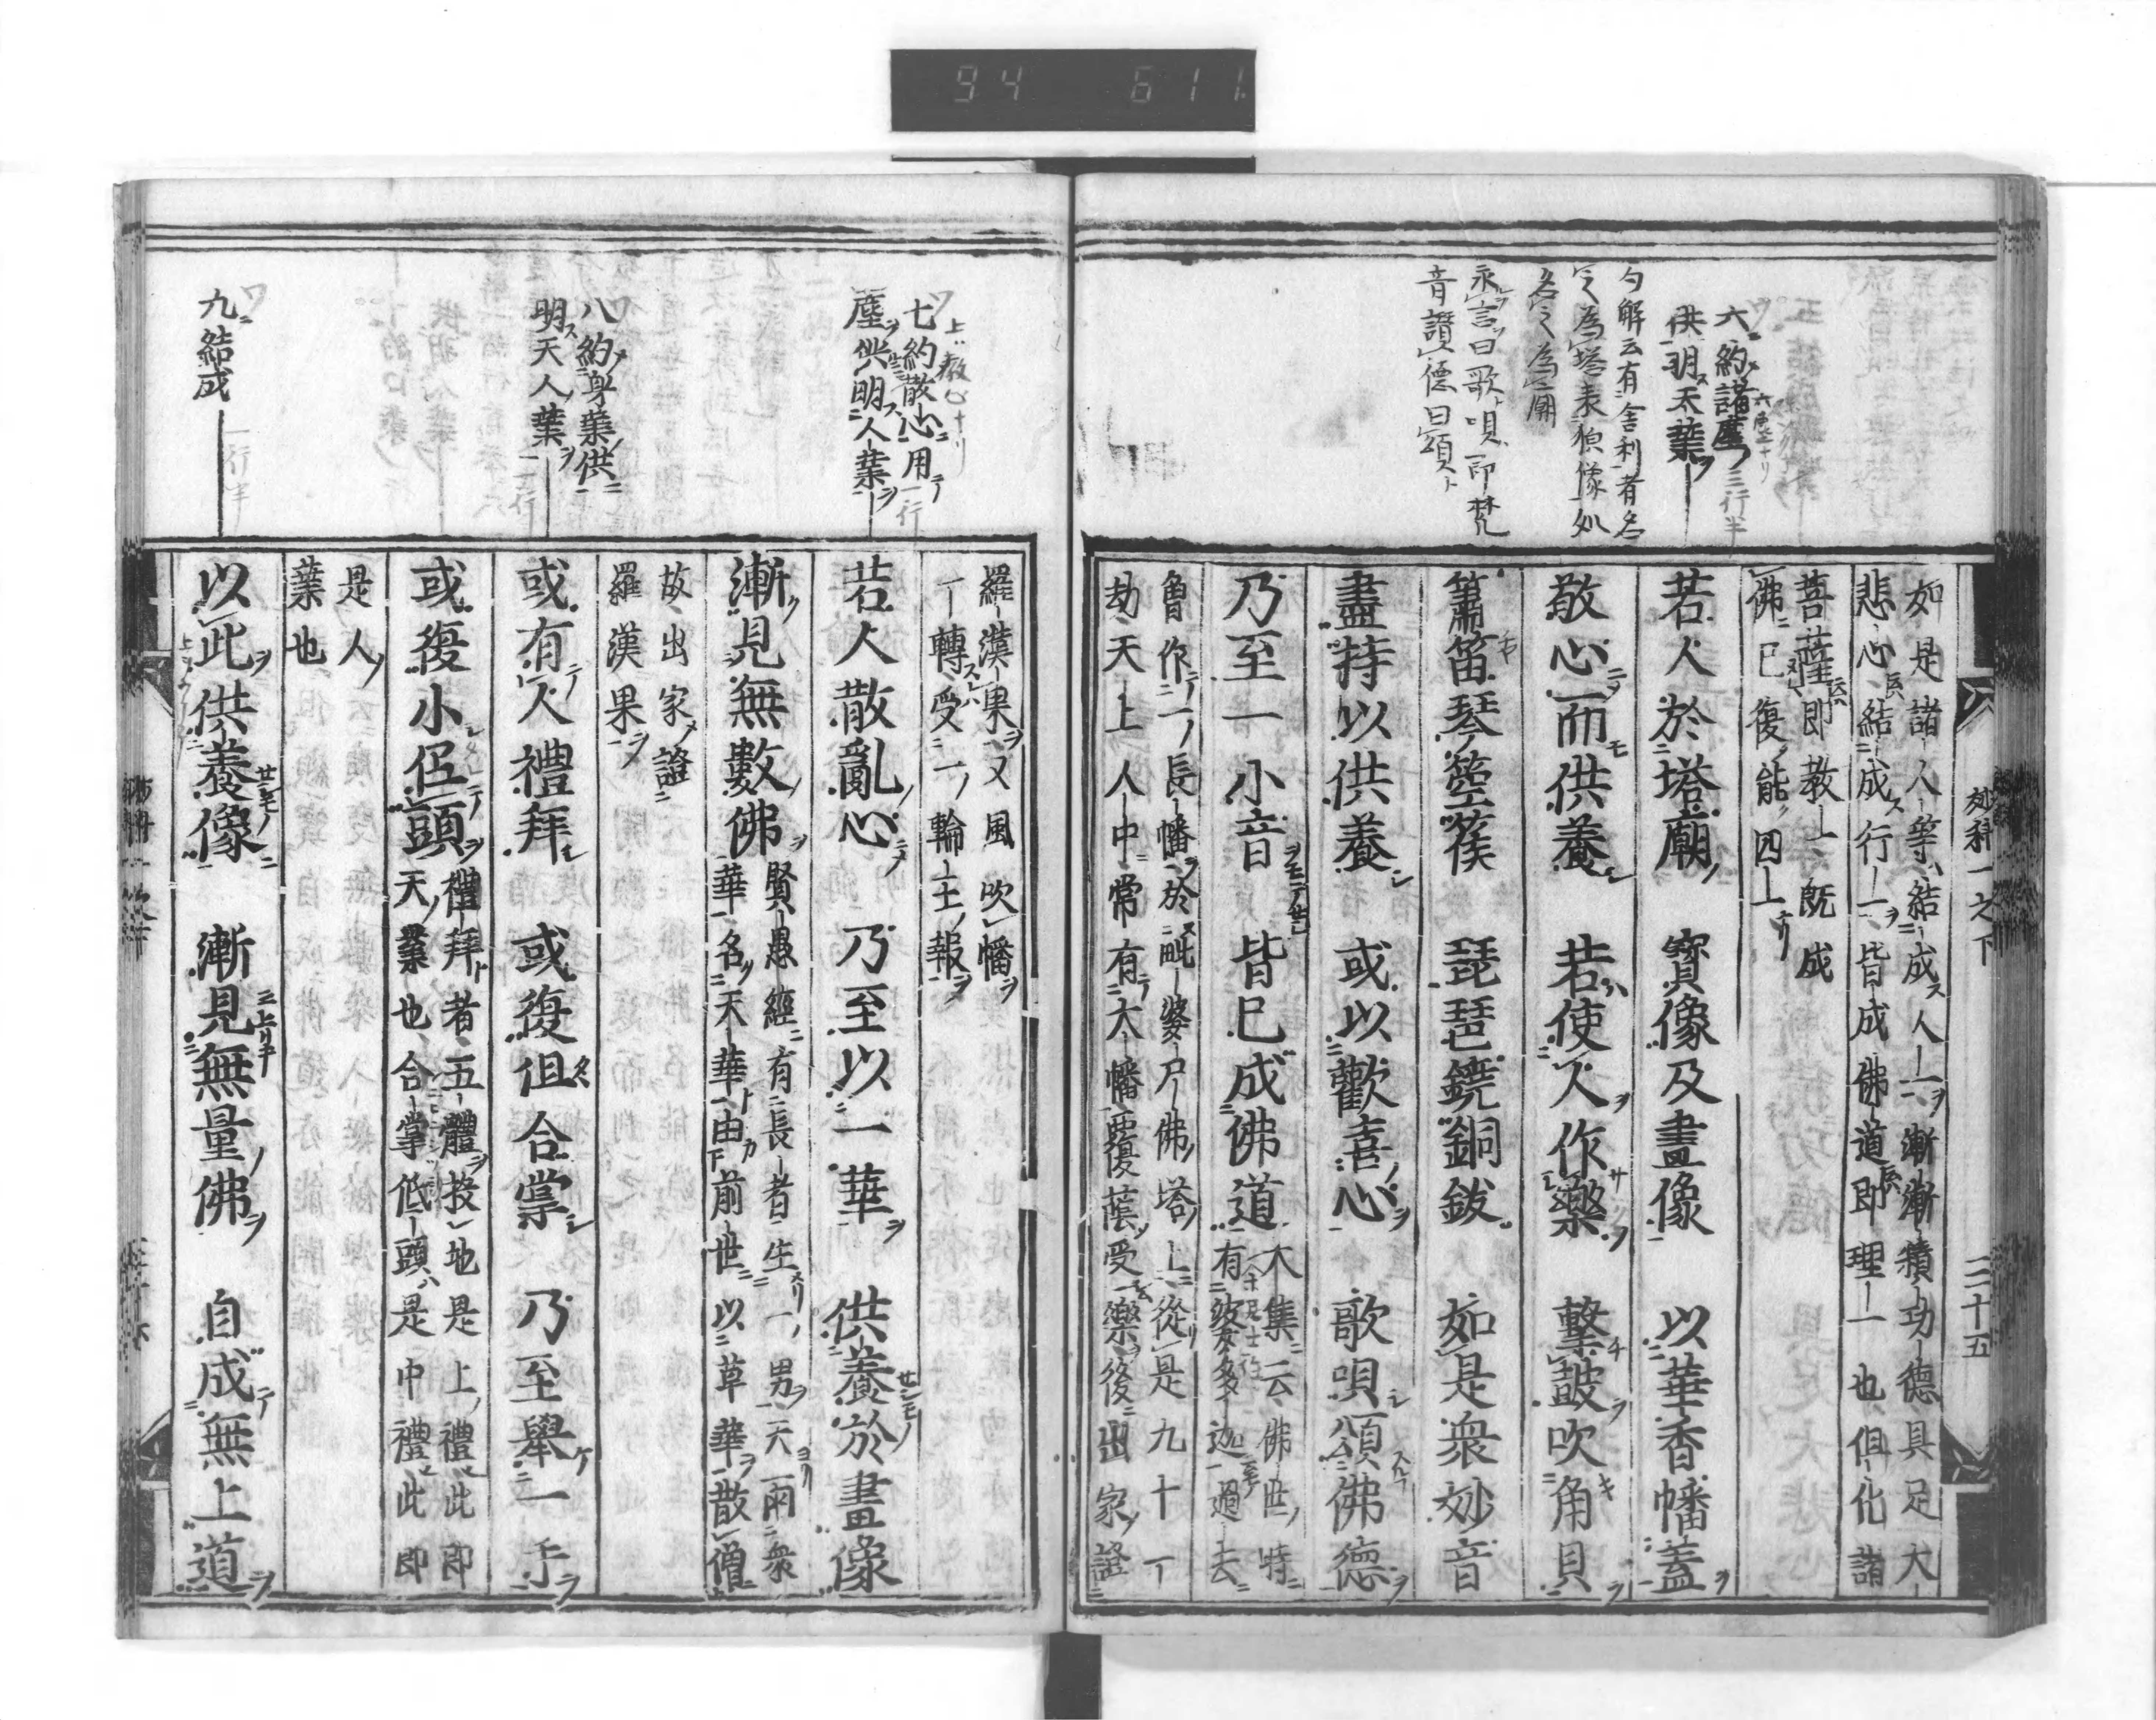 94 611
六約諸塵
供明天業
三行半
勺解云有舍利者名
之為塔表㒵像処
名之為廟
永言曰歌唄即梵
音讚德曰頌
妙科一之下 三十五
如是諸人等結成人一漸漸積功德具足大
悲心結成行一皆成佛道即理一也俱化諸
菩薩即教一既成
佛已復能四一
若人於塔廟 寶像及畫像 以華香幡蓋
敬心而供養 若使人作樂 擊鼓吹角貝
簫笛琴箜篌 琵琶鐃銅鈸 如是衆妙音
盡持以供養 或以歡喜心 歌唄頌佛德
乃至一小音 皆已成佛道
大集云佛世時
有波多迦過去
曾作一長幡於毗婆尸佛塔上從是九十一
劫天上人中常有大幡覆蔭受樂後出家證
羅漢果又風吹幡
一轉受一輪王報
七約散心用
塵供明人業
一行
若人散亂心 乃至以一華 供養於畫像
漸見無數佛
賢愚經有長者生一男天雨衆
華名天華由前世以草華散僧
故出家證
羅漢果
八約身業供
明天人業
二行
或有人禮拜 或復但合掌 乃至舉一手
或復小低頭
禮拜者五體投地是上禮此即
天業也合掌低頭是中禮此即
是人
業也
九結成
一行半
以此供養像 漸見無量佛 自成無上道